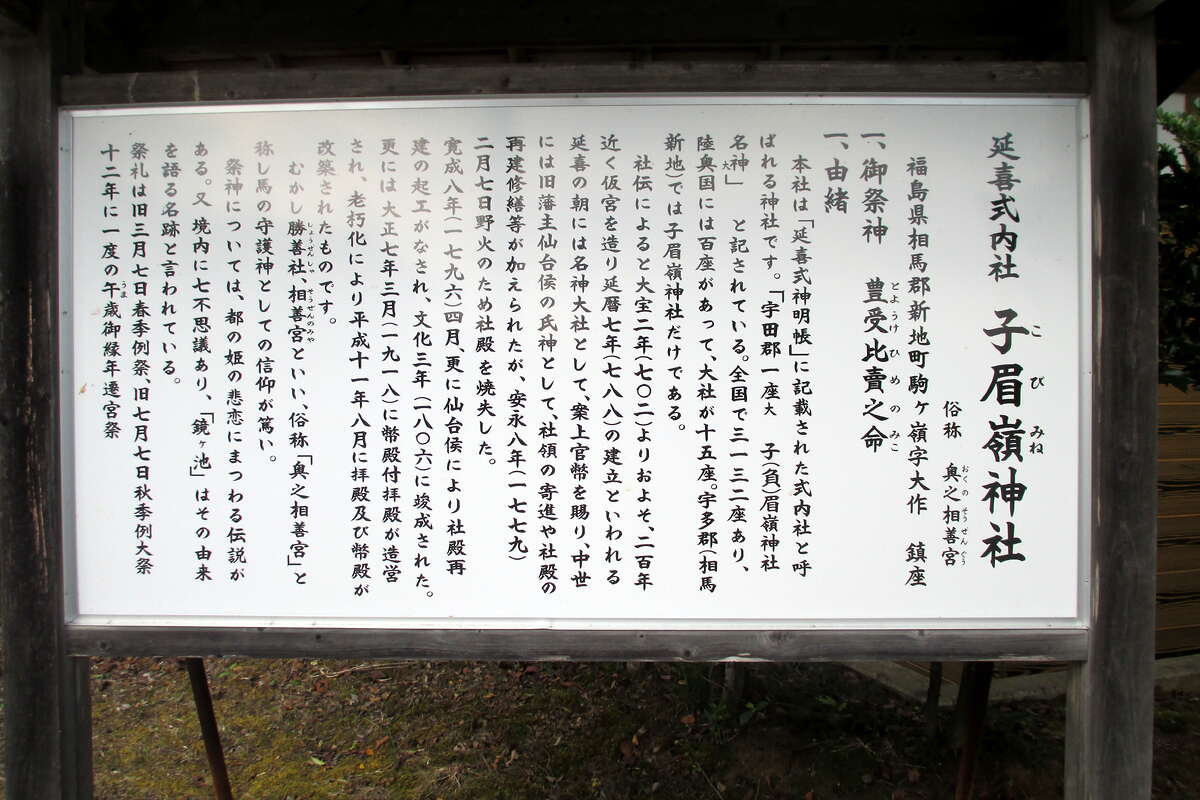 延喜式内社 子眉嶺神社
こ び みね
俗称 奥之相善宮
おくの そうぜんぐう
福島県相馬郡新地町駒ヶ嶺字大作 鎮座
一、御祭神 豊受比賣之命
とようけ ひ め の みこ
一、由緒
本社は「延喜式神明帳」に記載された式内社と呼
ばれる神社です。「宇田郡一座大 子(負)眉嶺神社
名神大」 と記されている。全国で三一三二座あり、
陸奥国には百座があって、大社が十五座。宇多郡(相馬
新地)では子眉嶺神社だけである。
社伝によると大宝二年(七〇二)よりおよそ、二百年
近く仮宮を造り延暦七年(七八八)の建立といわれる
延喜の朝には名神大社として、案上官幣を賜り、中世
には旧藩主仙台侯の氏神として、社領の寄進や社殿の
再建修繕等が加えられたが、安永八年(一七七九)
二月七日野火のため社殿を焼失した。
寛成八年(一七九六)四月、更に仙台侯により社殿再
建の起工がなされ、文化三年(一八〇六)に竣成された。
更には大正七年三月(一九一八)に幣殿付拝殿が造営
され、老朽化により平成十一年八月に拝殿及び幣殿が
改築されたものです。
むかし勝善社、相善宮といい、俗称「奥之相善宮」と
しょうぜんしゃ そうぜんのみや
称し馬の守護神としての信仰が篤い。
祭神については、都の姫の悲恋にまつわる伝説が
ある。又 境内に七不思議あり、「鏡ヶ池」はその由来
を語る名跡と言われている。
祭礼は旧三月七日春季例祭、旧七月七日秋季例大祭
十二年に一度の午歳御縁年遷宮祭
うま